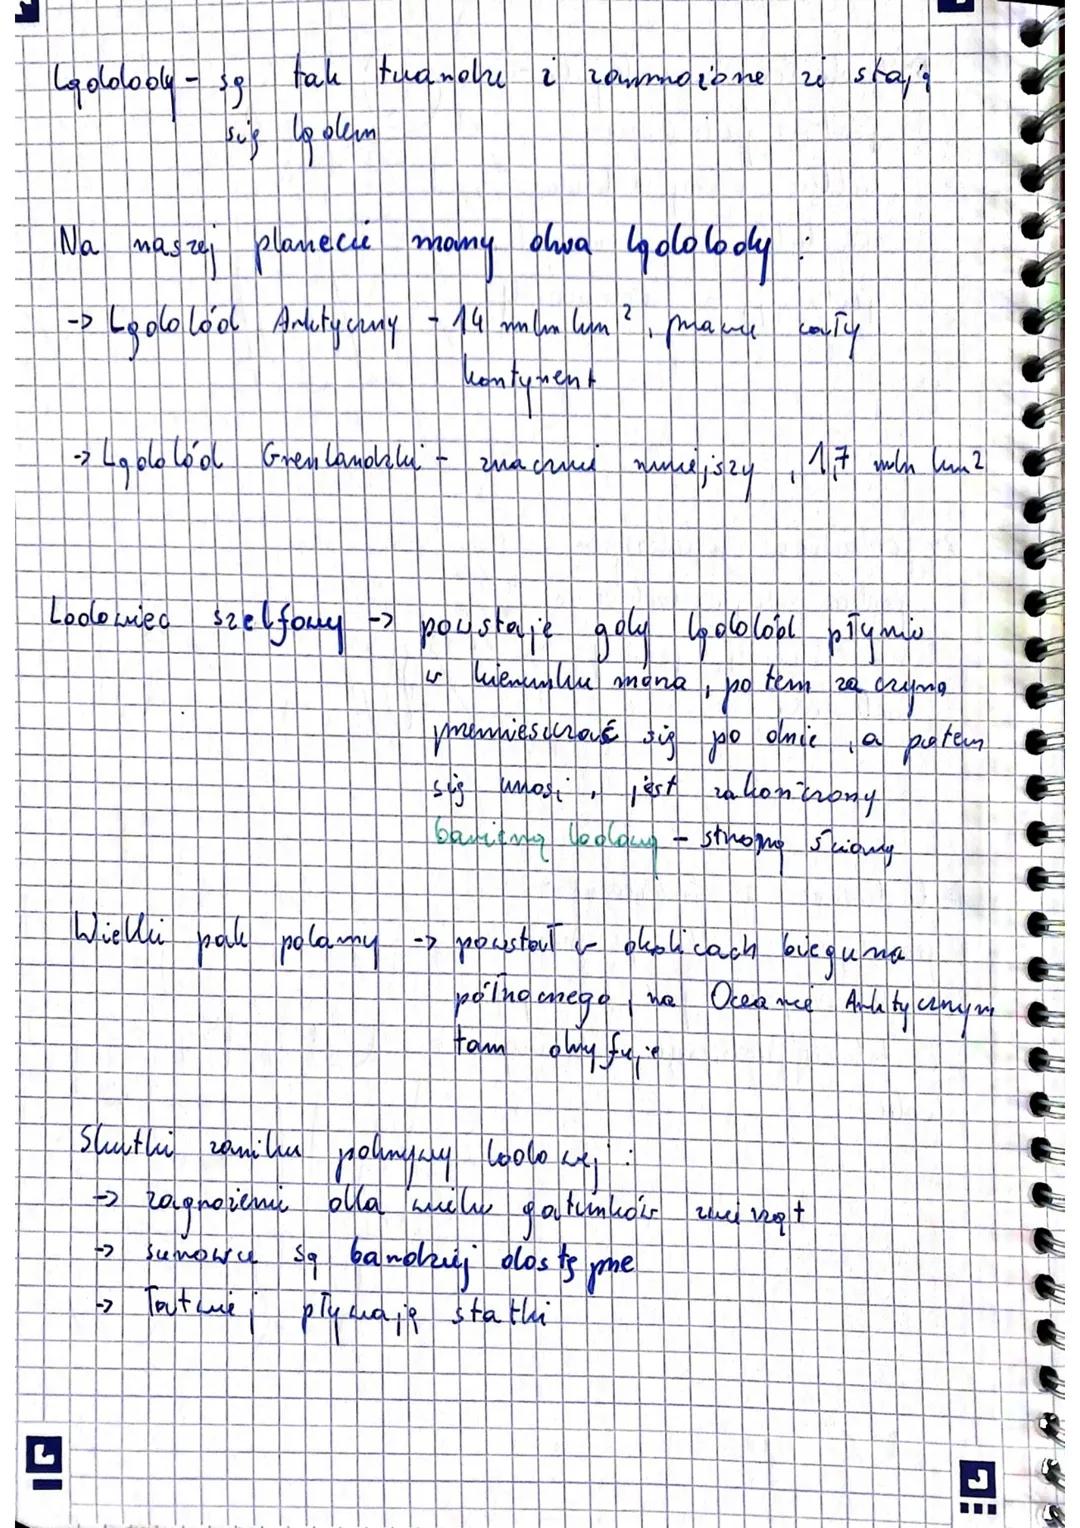 Lądolody - są tak twarde i zamrożone że stają
się lądem
Na naszej planecie mamy dwa lądolody :
-> Lądolód Arktyczny - 14 mln km², prawie cały
kontynent
-> Lądolód Grenlandzki - znacznie mniejszy , 1,7 mln km2
Lodowiec szelfowy -> powstaje gdy lądolód płynie
w kierunku morza, potem zaczyna
przemieszczać się po dnie , a potem
się unosi , jest zakończony
barierą lodową - stromą ścianą
Wielki pak polarny -> powstał w okolicach bieguna
północnego , na Oceanie Arktycznym
tam dryfuje
Skutki zaniku pokrywy lodowej :
-> zagrożenie dla wielu gatunków zwierząt
-> surowce są bardziej dostępne
-> łatwiej pływają statki